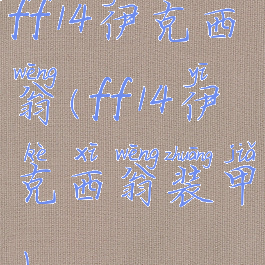 ff14伊克西
wēng yī
翁(ff14伊
kè xī wēng zhuāng jiǎ
克西翁装甲
)